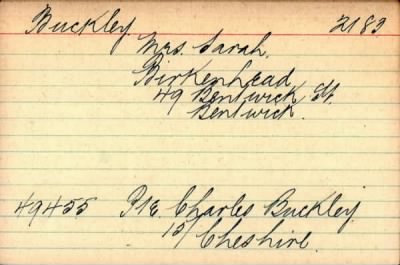 Buckley 2183
Mrs. Sarah.
Birkenhead
49 Bentwick St.
Bentwick.
49455 Pte. Charles Buckley
15/ Cheshire.